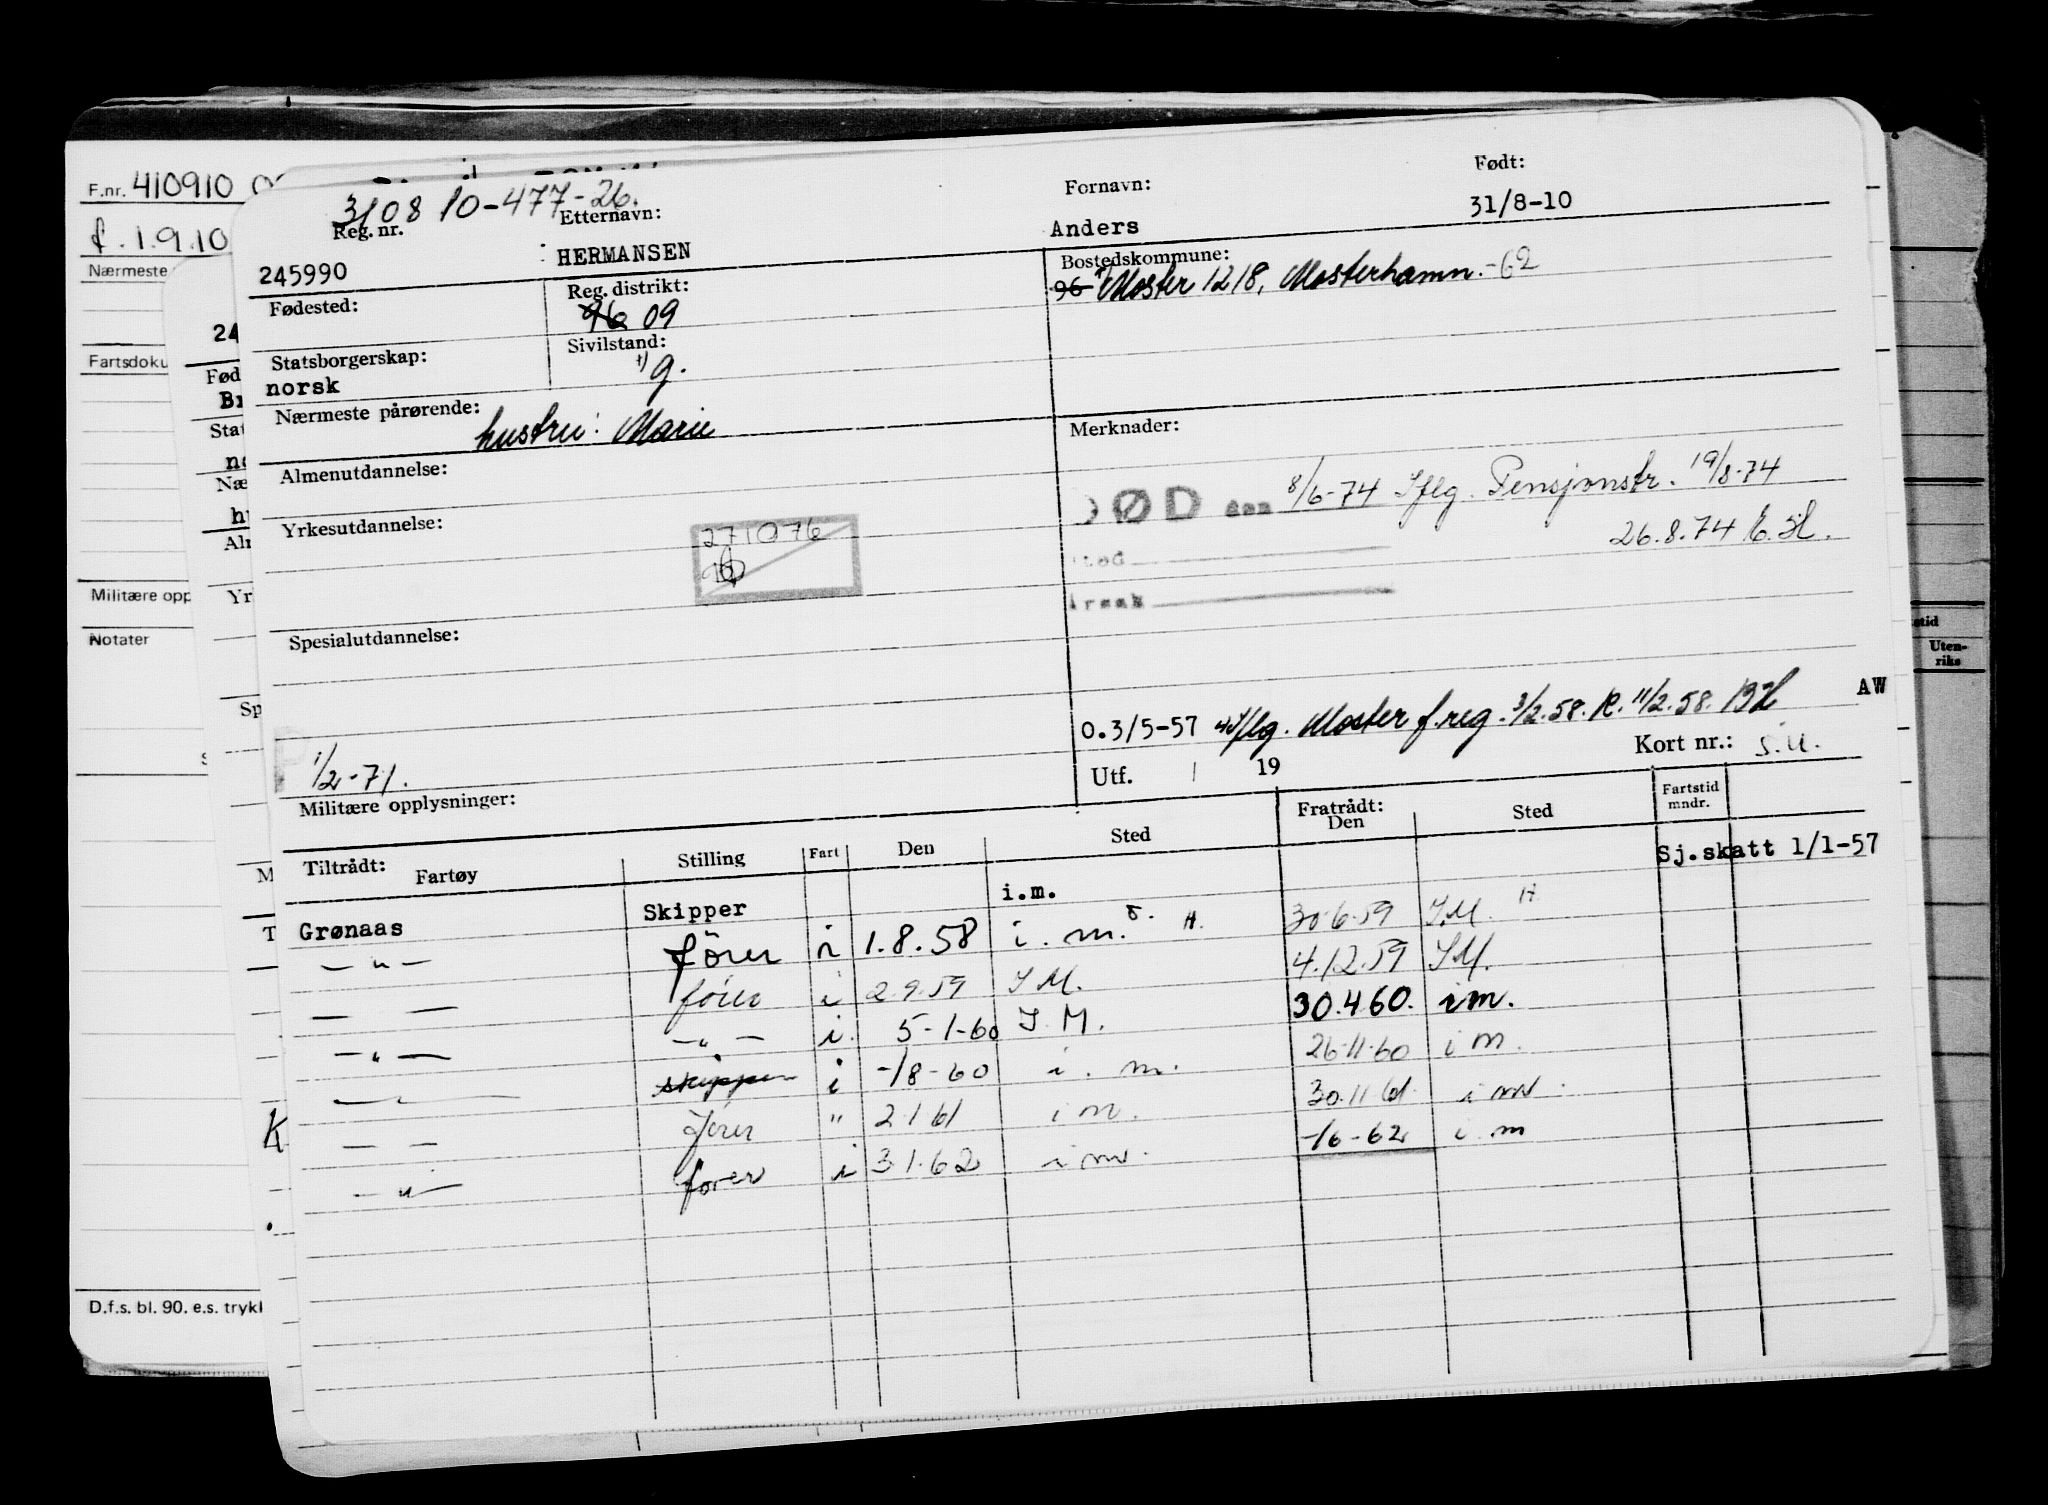 F.nr. 410910
f. 1.9.10
Nærmeste
Fartsdoku
Militære opp
Notater
D.f.s. bl. 90. e.s. trykk
24
Fød
Br
Stat
no
Næ
hu
Alm
Yr
Sp
M
T
K
310810-477-26.
Reg. nr.
Etternavn:
Fornavn:
Født:
245990
HERMANSEN
Anders
31/8-10
Fødested:
Reg. distrikt:
96 09
Bostedskommune:
96 Moster 1218, Mosterhamn. -62
Statsborgerskap:
norsk
Sivilstand:
g.
Nærmeste pårørende:
hustru: Marie
Merknader:
Almenutdannelse:
ØD den 8/6-74 Iflg. Pensjonstr. 19/8-74
26.8.74
Yrkesutdannelse:
271076
Spesialutdannelse:
AW
0.3/5-57 Iflg. Moster f.reg. 3/2.58. R. 11/2.58.
1/2-71.
Utf. 19
Kort nr.: S.U.
Militære opplysninger:
Tiltrådt:
Fartøy
Stilling
Fart
Den
Sted
Fratrådt:
Den
Sted
Fartstid
mndr.
Sj.skatt 1/1-57
Grønaas Skipper i.m.
— " — fører i 1.8.58 i.m. H. 30.6.59 I.M. H
— — fører i 2.9.59 I M. 4.12.59 I M.
— " — — " — i. 5-1-60 I. M. 30.4.60. im.
— — skipper i -/8-60 i. m. 26.11.60 i m.
— — fører " 2.1.61 i m. 30.11.61 i m.
— " — fører i 3.1.62 i m. -/6-62 i. m
stid
Uten-
riks